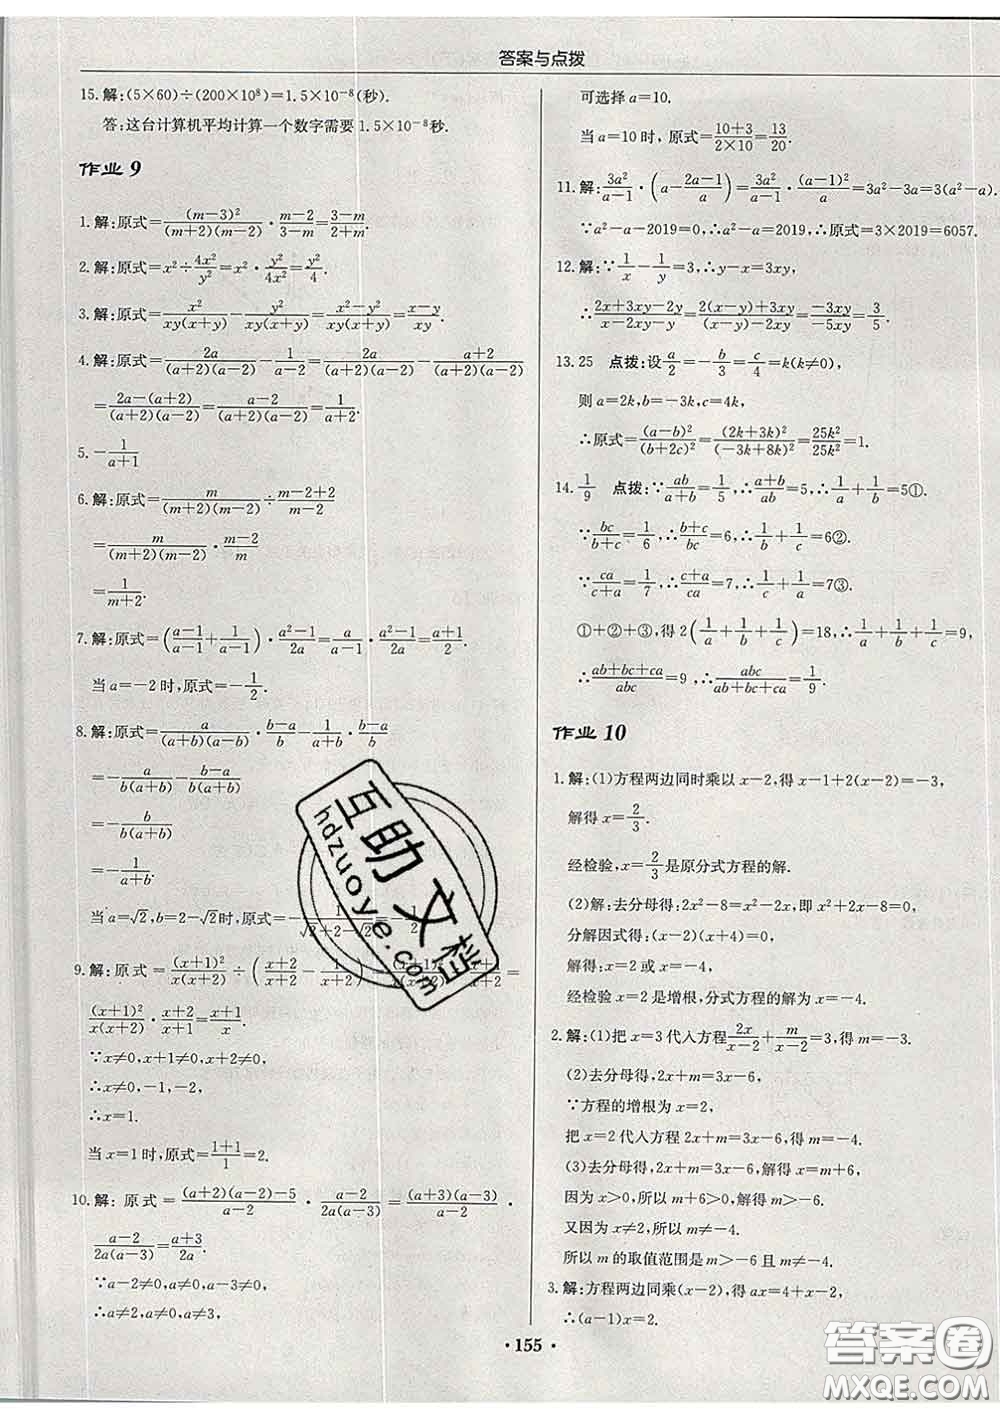 答案与点拨
15.解:(5×60)÷(200×10⁸)=1.5×10⁻⁸(秒).
答:这台计算机平均计算一个数字需要1.5×10⁻⁸秒.
作业9
1.解:原式=(m-3)²/(m+2)(m-2)·(m-2)/(3-m)=(3-m)/(2+m).
2.解:原式=x²÷4x²/y²=x²·y²/4x²=y²/4.
3.解:原式=x²/xy(x+y)-y²/xy(x+y)=(x²-y²)/xy(x+y)=(x-y)/xy.
4.解:原式=2a/(a+2)(a-2)-1/(a-2)=2a/(a+2)(a-2)-(a+2)/(a+2)(a-2)
=(2a-(a+2))/(a+2)(a-2)=(a-2)/(a+2)(a-2)=1/(a+2).
5.-1/(a+1)
6.解:原式=m/(m+2)(m-2)÷(m-2+2)/(m-2)
=m/(m+2)(m-2)·(m-2)/m
=1/(m+2).
7.解:原式=((a-1)/(a-1)+1/(a-1))·(a²-1)/2a=a/(a-1)·(a²-1)/2a=(a+1)/2.
当a=-2时,原式=-1/2.
8.解:原式=a/(a+b)(a-b)·(b-a)/b-1/(a+b)·(b-a)/b
=-a/b(a+b)-(b-a)/b(a+b)
=-b/b(a+b)
=-1/(a+b).
当a=√2,b=2-√2时,原式=-1/(√2+2-√2)=-1/2.
9.解:原式=(x+1)²/x(x+2)÷((x+2)/(x+2)-1/(x+2))=(x+1)²/x(x+2)÷(x+1)/(x+2)=
(x+1)²/x(x+2)·(x+2)/(x+1)=(x+1)/x.
∵x≠0,x+1≠0,x+2≠0,
∴x≠0,-1,-2,
∴x=1.
当x=1时,原式=(1+1)/1=2.
10.解:原式=((a+2)(a-2)-5)/(a-2)·(a-2)/2a(a-3)=(a+3)(a-3)/(a-2)·
(a-2)/2a(a-3)=(a+3)/2a.
∵a-2≠0,a≠0,a-3≠0,
∴a≠2,a≠0,a≠3,
可选择a=10.
当a=10时,原式=(10+3)/(2×10)=13/20.
11.解:3a²/(a-1)·(a-(2a-1)/a)=3a²/(a-1)·(a-1)²/a=3a²-3a=3(a²-a).
∵a²-a-2019=0,∴a²-a=2019,∴原式=3×2019=6057.
12.解:∵1/x-1/y=3,∴y-x=3xy,
∴(2x+3xy-2y)/(x-2xy-y)=(2(x-y)+3xy)/((x-y)-2xy)=-3xy/-5xy=3/5.
13.25 点拨:设a/2=-b/3=c/4=k(k≠0),
则a=2k,b=-3k,c=4k,
∴原式=(a-b)²/(b+2c)²=(2k+3k)²/(-3k+8k)²=25k²/k²=1.
14.1/9 点拨:∵ab/(a+b)=1/5,∴(a+b)/ab=5,∴1/a+1/b=5①.
∵bc/(b+c)=1/6,∴(b+c)/bc=6,∴1/b+1/c=6②.
∵ca/(c+a)=1/7,∴(c+a)/ca=7,∴1/c+1/a=7③.
①+②+③,得2(1/a+1/b+1/c)=18,∴1/a+1/b+1/c=9,
∴(ab+bc+ca)/abc=9,∴abc/(ab+bc+ca)=1/9.
作业10
1.解:(1)方程两边同时乘以x-2,得x-1+2(x-2)=-3,
解得x=2/3.
经检验,x=2/3是原分式方程的解.
(2)解:去分母得:2x²-8=x²-2x,即x²+2x-8=0,
分解因式得:(x-2)(x+4)=0,
解得:x=2或x=-4,
经检验x=2是增根,分式方程的解为x=-4.
2.解:(1)把x=3代入方程2x/(x-2)+m/(x-2)=3,得m=-3.
(2)去分母得,2x+m=3x-6,
∵方程的增根为x=2,
把x=2代入方程2x+m=3x-6,得m=-4.
(3)去分母得,2x+m=3x-6,解得x=m+6,
因为x>0,所以m+6>0,解得m>-6.
又因为x≠2,所以m≠-4.
所以m的取值范围是m>-6且m≠-4.
3.解:方程两边同乘(x-2),得ax=4+x-2,
∴(a-1)x=2.
·155·
互助文档
hdzuoye.com
答案圈
MXQE.COM